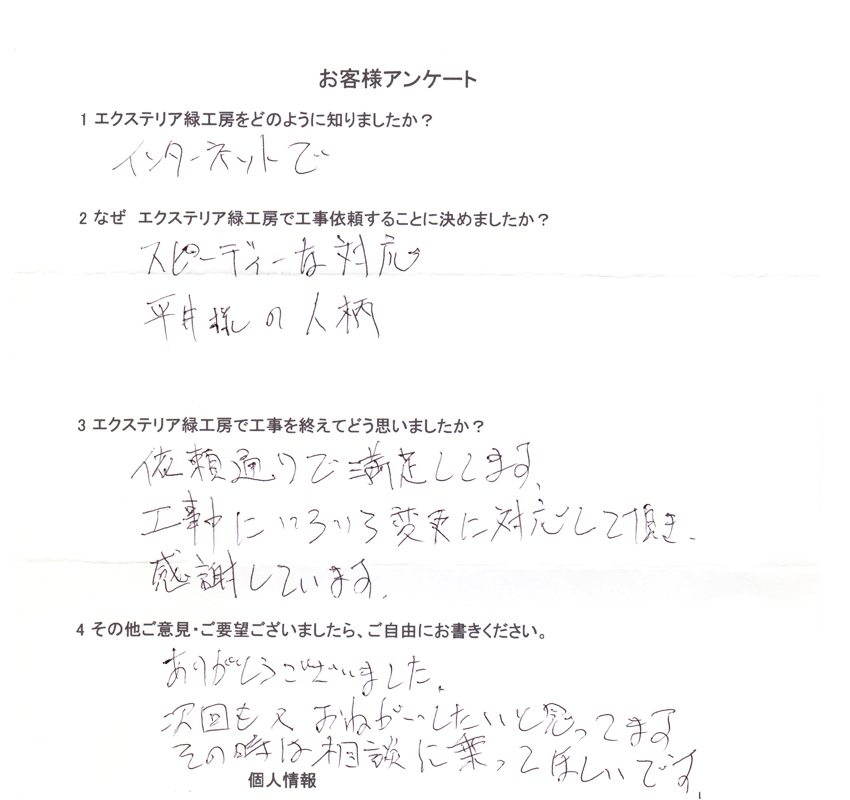 お客様アンケート
1 エクステリア緑工房をどのように知りましたか？
インターネットで
2 なぜ エクステリア緑工房で工事依頼することに決めましたか？
スピーディーな対応
平井様の人柄
3 エクステリア緑工房で工事を終えてどう思いましたか？
依頼通りで満足してます。
工事中にいろいろ変更に対応して頂き、
感謝しています。
4 その他ご意見・ご要望ございましたら、ご自由にお書きください。
ありがとうございました。
次回も又おねがいしたいと思ってます
その時は相談に乗ってほしいです。
個人情報